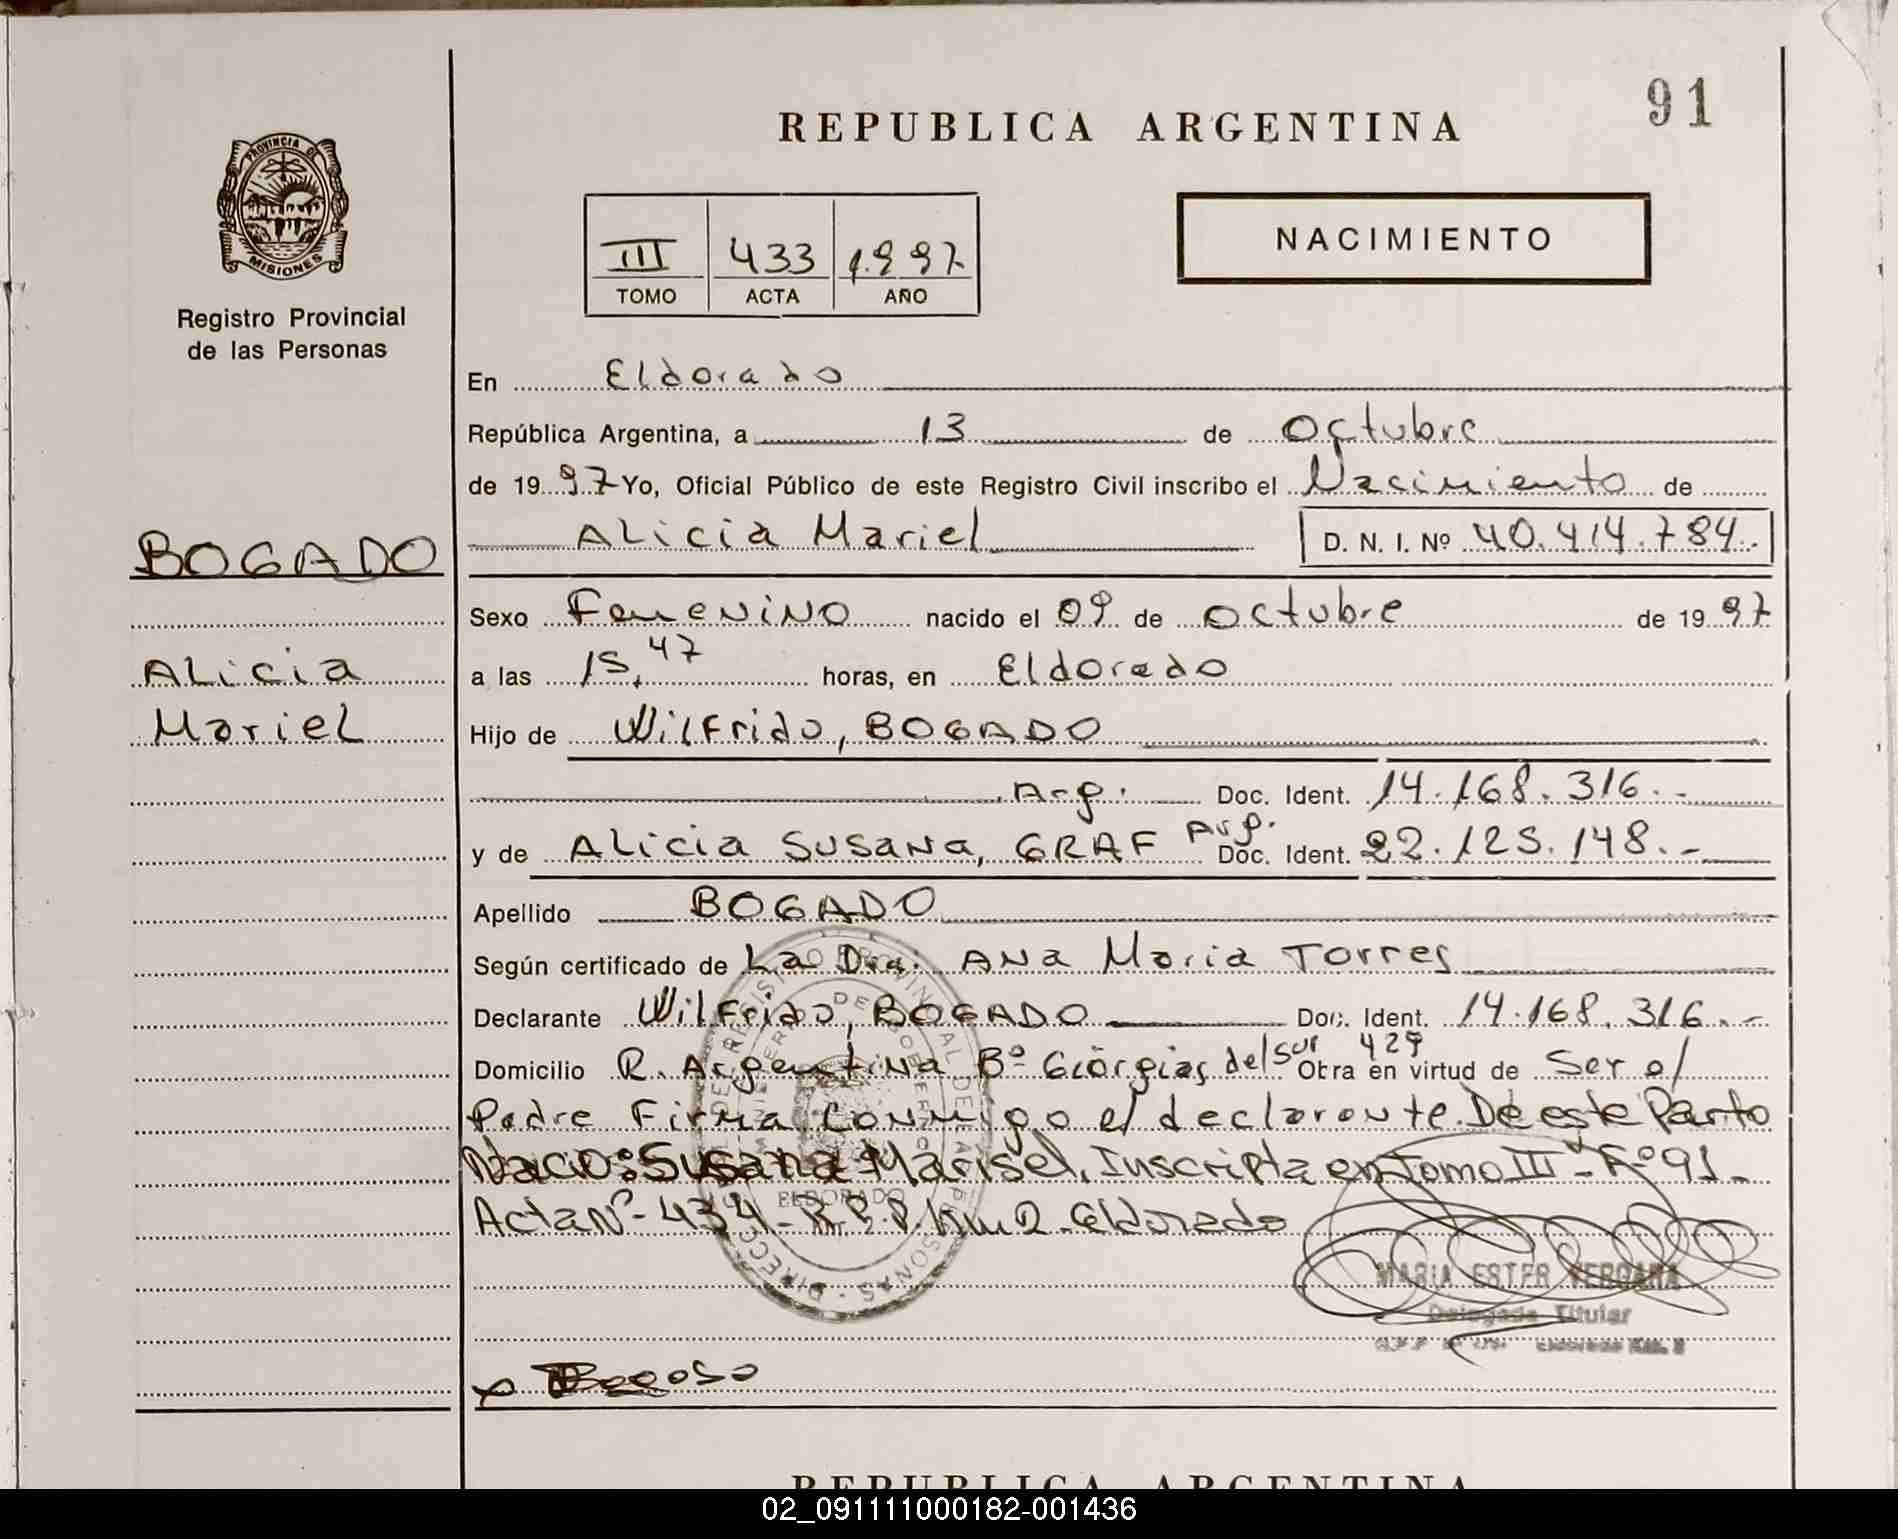 91
REPUBLICA ARGENTINA
PROVINCIA DE
MISIONES
Registro Provincial
de las Personas
III 433 1.997
TOMO ACTA AÑO
NACIMIENTO
En Eldorado
República Argentina, a 13 de Octubre
de 1997 Yo, Oficial Público de este Registro Civil inscribo el Nacimiento de
BOGADO
Alicia Mariel D. N. I. Nº 40.414.784.
Sexo Femenino nacido el 09 de Octubre de 1997
Alicia
a las 15,47 horas, en Eldorado
Mariel
Hijo de Wilfrido, BOGADO
Arg. Doc. Ident. 14.168.316.-
y de Alicia Susana, GRAF Arg. Doc. Ident. 22.125.148.-
Apellido BOGADO
Según certificado de La Dra. Ana Maria Torres
Declarante Wilfrido, BOGADO Doc. Ident. 14.168.316.-
Domicilio R. Argentina Bº Giorgias del Sur 429 Otra en virtud de Ser el
Padre Firma conmigo el declarante. De este Parto
Nacio: Susana Marisel, Inscripta en Tomo III - Fº 91 -
Acta Nº - 434 - R.P.P. Km 2 - Eldorado
ELDORADO
MARIA ESTER VERGARA
Delegada Titular
Eldorado Km. 2
REPUBLICA ARGENTINA
02_091111000182-001436